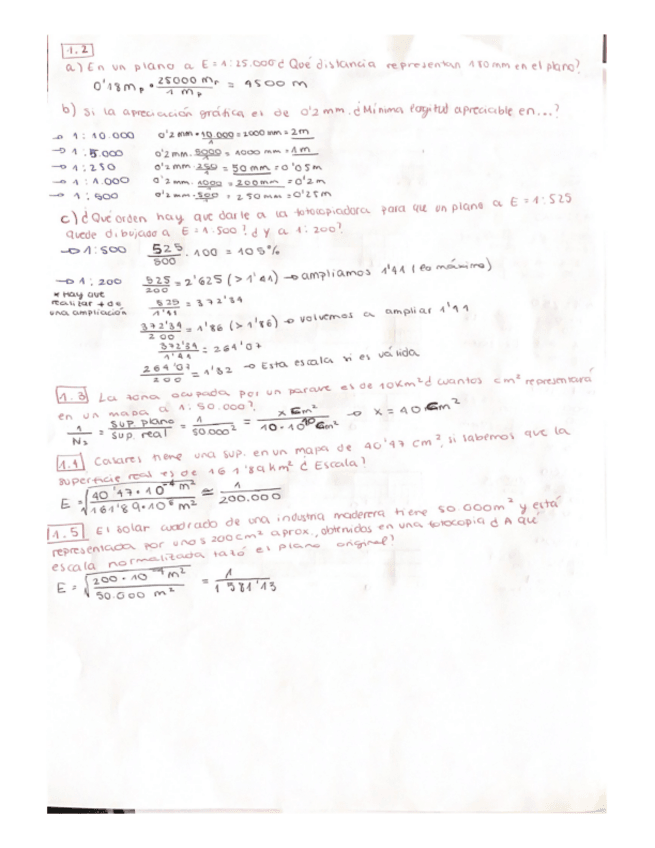 1.2
a) En un plano a E = 1:25.000 ¿ Qué distancia representan 180 mm en el plano?
0'18 mp · 25000 mp / 1 mp = 4500 m
b) si la apreciación gráfica es de 0'2 mm. ¿Mínima longitud apreciable en...?
→ 1:10.000 0'2 mm · 10.000/1 = 2000 mm = 2m
→ 1:5.000 0'2 mm · 5000/1 = 1000 mm = 1m
→ 1:250 0'2 mm · 250/1 = 50 mm = 0'05 m
→ 1:1.000 0'2 mm · 1000/1 = 200 mm = 0'2 m
→ 1:500 0'2 mm · 500/1 = 250 mm = 0'25 m
c) ¿Qué orden hay que darle a la fotocopiadora para que un plano a E = 1:525
quede dibujado a E = 1:500? ¿ y a 1:200?
→ 1:500 525/500 · 100 = 105 %
→ 1:200 525/200 = 2'625 (> 1'41) → ampliamos 1'41 (lo máximo)
* Hay que
realizar + de
una ampliación
525/1'41 = 372'34
372'34/200 = 1'86 (> 1'86) → volvemos a ampliar 1'41
372'34/1'41 = 264'07
264'07/200 = 1'32 → Esta escala si es válida
1.3 La zona ocupada por un parque es de 10 Km² ¿ cuantos cm² representará
en un mapa a 1:50.000?
1/N² = sup. plano/sup. real = 1/50.000² = x cm²/10·10¹⁰ cm² → x = 40 cm²
1.4 Casares tiene una sup. en un mapa de 40'47 cm², si sabemos que la
superficie real es de 161'89 km² ¿ Escala?
E = √(40'47·10⁻⁴ m²/161'89·10⁶ m²) ≅ 1/200.000
1.5 El solar cuadrado de una industria maderera tiene 50.000 m² y está
representada por unos 200 cm² aprox., obtenidos en una fotocopia ¿ A qué
escala normalizada el plano original?
E = √(200·10⁻⁴ m²/50.000 m²) = 1/1581'13